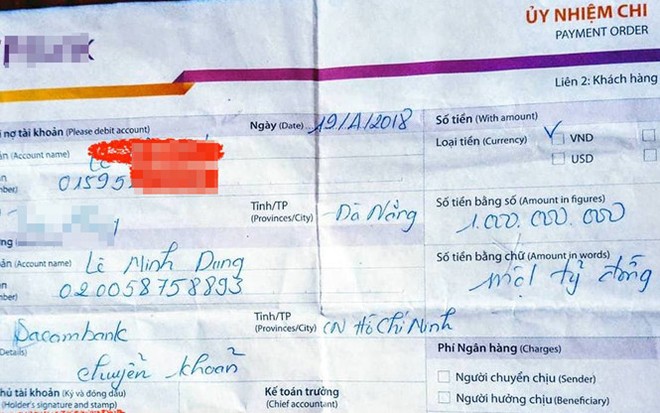 ỦY NHIỆM CHI
PAYMENT ORDER
Liên 2: Khách hàng
i nợ tài khoản (Please debit account)
Ngày (Date) 19/1/2018
Số tiền (With amount)
Loại tiền (Currency) VND
USD
ản (Account name) Lê
ản
mber) 01595
Tỉnh/TP
(Provinces/City) Đà Nẵng
Số tiền bằng số (Amount in figures)
1.000.000.000
ng
ản (Account name) Lê Minh Dung
Số tiền bằng chữ (Amount in words)
một tỷ đồng
ản
mber) 020058758893
Sacombank
Tỉnh/TP
(Provinces/City) CN Hồ Chí Minh
Details) chuyển khoản
Phí Ngân hàng (Charges)
Người chuyển chịu (Sender)
Người hưởng chịu (Beneficiary)
hủ tài khoản (Ký và đóng dấu)
(Holder's signature and stamp)
Kế toán trưởng
(Chief accountant)